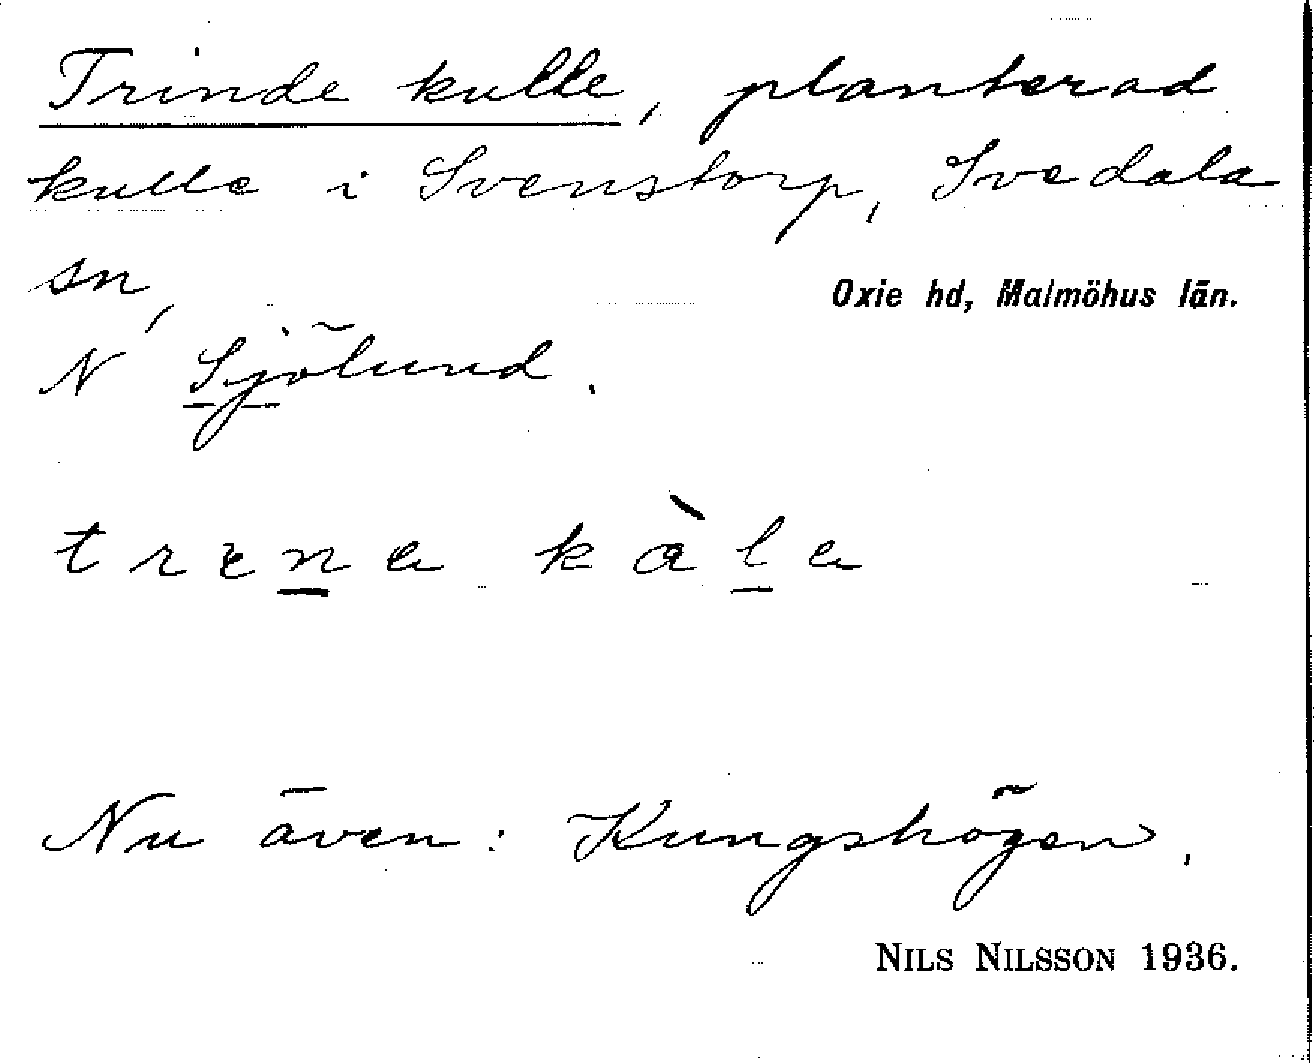 Trinde kulle, planterad
kulle i Svenstorp, Svedala
sn,
Oxie hd, Malmöhus län.
N Sjölund.
kàla
Nu även: Kungshögen.
NILS NILSSON 1936.